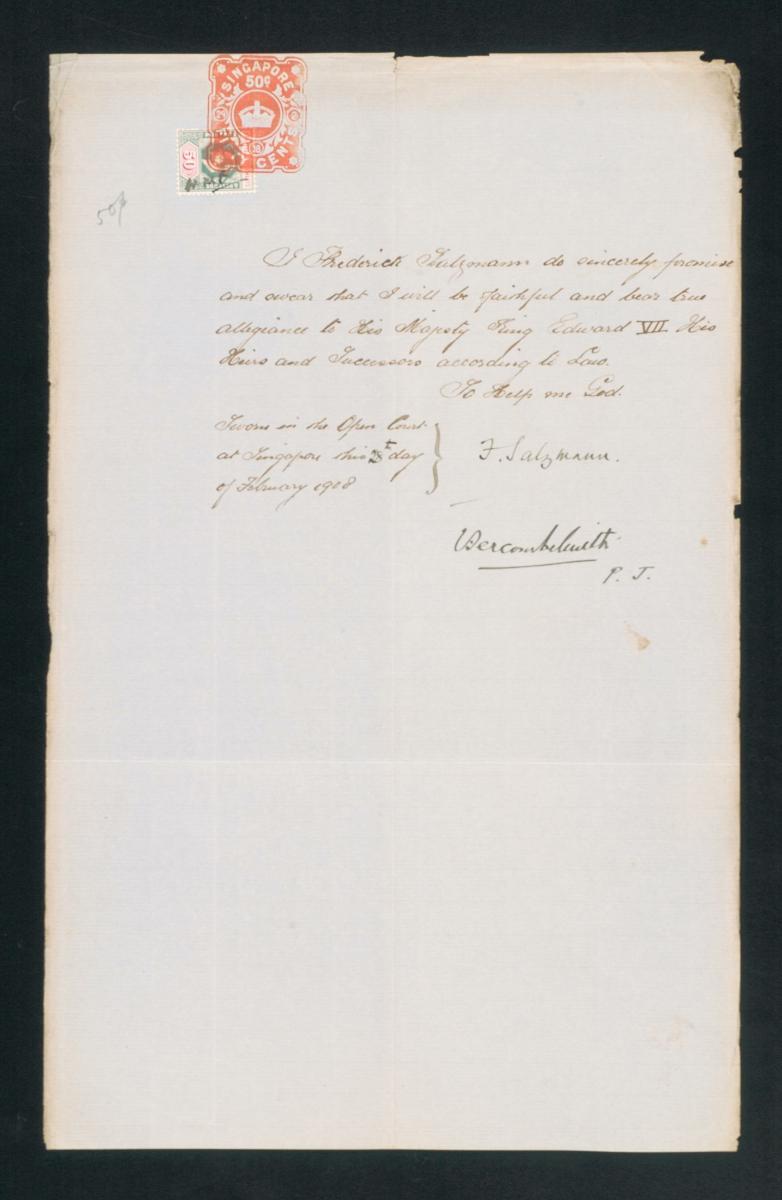 SINGAPORE
50c
CENTS
50
50¢
I Frederick Salzmann do sincerely promise
and swear that I will be faithful and bear true
allegiance to His Majesty King Edward VII His
Heirs and Successors according to Law.
So Help me God.
Sworn in the Open Court
at Singapore this day
of February 1908
F. Salzmann.
P. J.